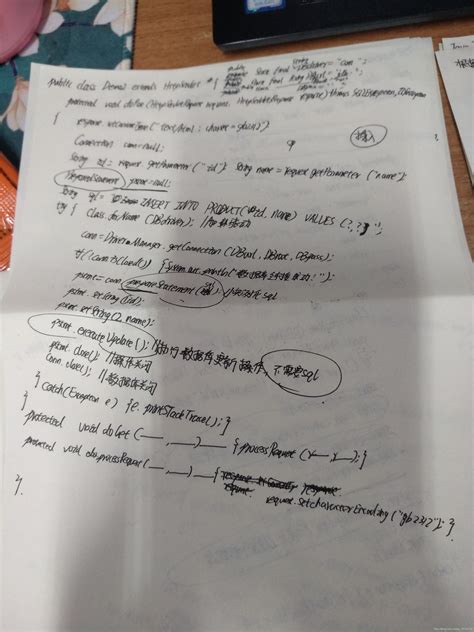 public class Demo2 extends HttpServlet {
protected void doPost (HttpServletRequest request, HttpServletResponse response) throws SQLException, IOException
{ response.setContentType("text/html; charset=gb2312");
插入
Connection con=null;
String id = request.getParameter("id"); String name = request.getParameter("name");
PreparedStatement pstmt=null;
String sql = "INSERT INTO PRODUCT(id, name) VALUES (?,?)";
try { Class.forName(DBdriver); //加载驱动
conn=DriverManager.getConnection(DBurl, DBuser, DBpass);
if(!conn.isClosed()) {System.out.println("数据库连接成功!");}
pstmt= conn.prepareStatement(sql); //sql
pstmt.setString(1,id);
pstmt.setString(2,name);
pstmt.executeUpdate(); //执行数据库更新操作，不需要sql
pstmt.close(); //操作关闭
conn.close(); //数据库关闭
} catch(Exception e) {e.printStackTrace();}
}
protected void doGet (— , —) — { processRequest (— , —);}
protected void doprocessRequest(— , —) — {
request.setCharacterEncoding("gb2312"); }
}